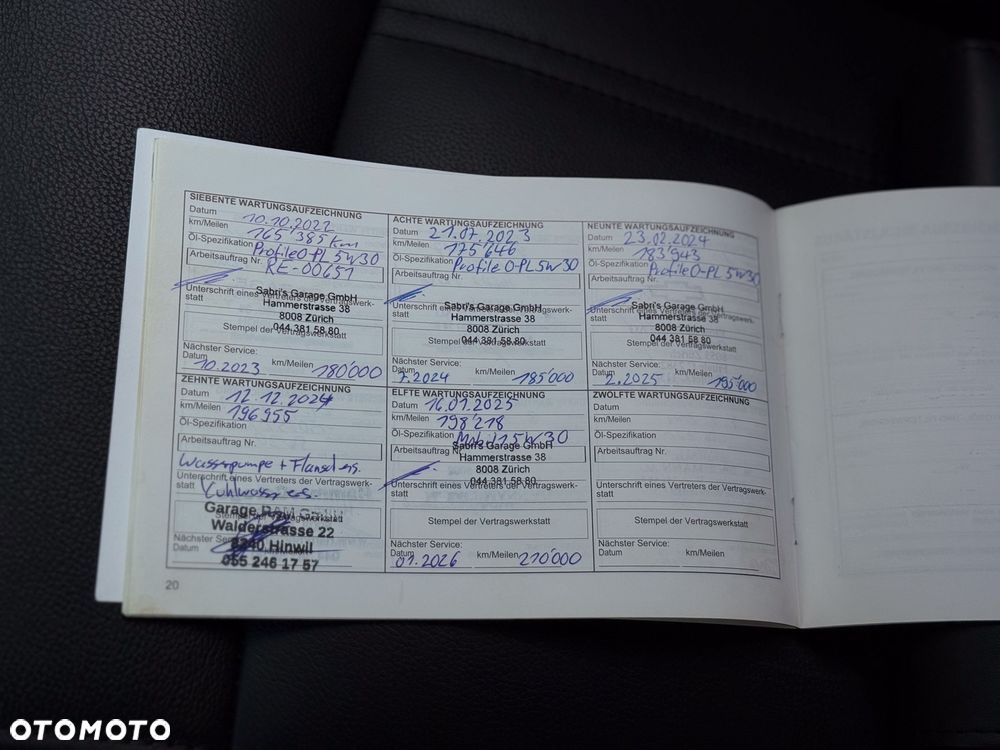 SIEBENTE WARTUNGSAUFZEICHNUNG
Datum 10.10.2022
km/Meilen 165'385 km
Öl-Spezifikation Profile O-PL 5W30
Arbeitsauftrag Nr. RE-00651
Sabri's Garage GmbH
Unterschrift eines Vertreters der Vertragswerk-
statt
Hammerstrasse 38
8008 Zürich
Stempel der Vertragswerkstatt
044 381 58 80
Nächster Service:
Datum 10.2023 km/Meilen 180'000
ACHTE WARTUNGSAUFZEICHNUNG
Datum 21.07.2023
km/Meilen 175'646
Öl-Spezifikation Profile O-PL 5W30
Arbeitsauftrag Nr.
Sabri's Garage GmbH
Unterschrift eines Vertreters der Vertragswerk-
statt
Hammerstrasse 38
8008 Zürich
044 381 58 80
Stempel der Vertragswerkstatt
Nächster Service:
Datum 7.2024 km/Meilen 185'000
NEUNTE WARTUNGSAUFZEICHNUNG
Datum 23.02.2024
km/Meilen 183'943
Öl-Spezifikation Profile O-PL 5W30
Arbeitsauftrag Nr.
Sabri's Garage GmbH
Unterschrift eines Vertreters der Vertragswerk-
statt
Hammerstrasse 38
8008 Zürich
044 381 58 80
Stempel der Vertragswerkstatt
Nächster Service:
Datum 2.2025 km/Meilen 195'000
ZEHNTE WARTUNGSAUFZEICHNUNG
Datum 12.12.2024
km/Meilen 196955
Öl-Spezifikation
Arbeitsauftrag Nr.
Wasserpumpe +
Unterschrift eines Vertreters der Vertragswerk-
statt
Garage GmbH
Stempel der Vertragswerkstatt
Walderstrasse 22
8340 Hinwil
Nächster Service:
Datum
055 246 17 57
ELFTE WARTUNGSAUFZEICHNUNG
Datum 16.01.2025
km/Meilen 198'218
Öl-Spezifikation Mobil 1 5W30
Sabri's Garage GmbH
Arbeitsauftrag Nr.
Hammerstrasse 38
8008 Zürich
044 381 58 80
Unterschrift eines Vertreters der Vertragswerk-
statt
Stempel der Vertragswerkstatt
Nächster Service:
Datum 01.2026 km/Meilen 210'000
ZWÖLFTE WARTUNGSAUFZEICHNUNG
Datum
km/Meilen
Öl-Spezifikation
Arbeitsauftrag Nr.
Unterschrift eines Vertreters der Vertragswerk-
statt
Stempel der Vertragswerkstatt
Nächster Service:
Datum km/Meilen
20
OTOMOTO